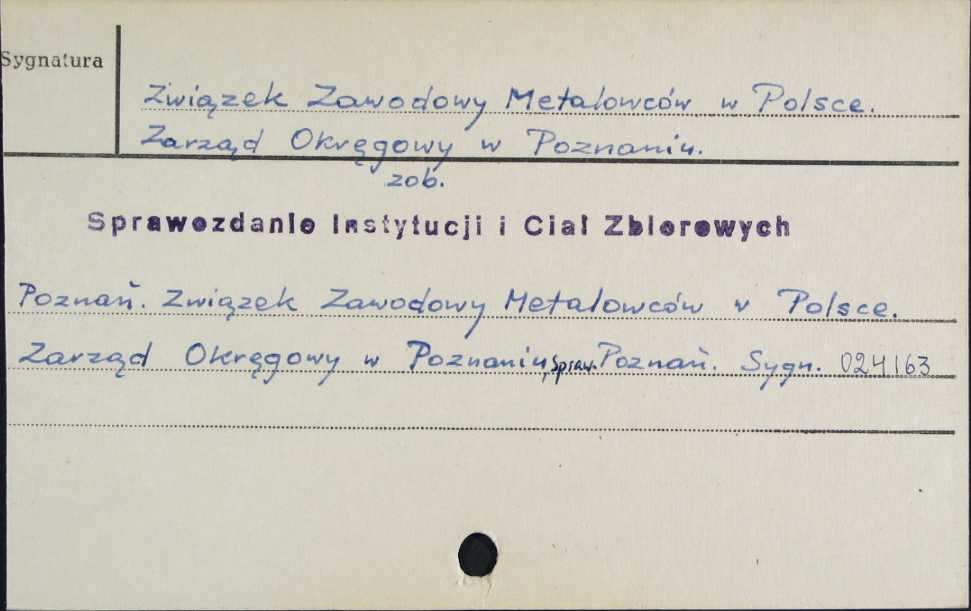 Sygnatura
Związek Zawodowy Metalowców w Polsce.
Zarząd Okręgowy w Poznaniu.
zob.
Sprawozdanie Instytucji i Ciał Zbiorowych
Poznań. Związek Zawodowy Metalowców w Polsce.
Zarząd Okręgowy w Poznaniu, Spraw. Poznań. Sygn. 024163